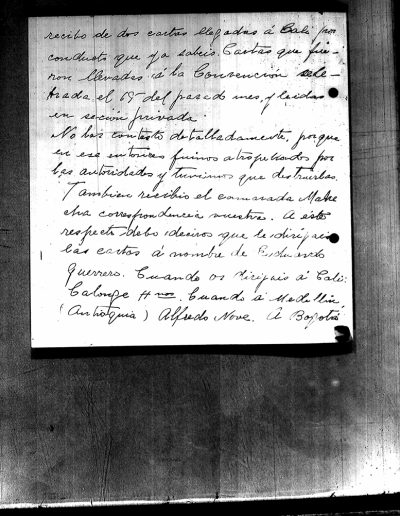 recibo de dos cartas llegadas á Cali por
conducto que ya sabeis. Cartas que fue-
ron llevadas á la Convención cele-
brada el 15 del pasado mes, y leidas
en seción privada.
No las contesto detalladamente, porque
en ese entonces fuimos atropellados por
las autoridades y tuvimos que destruirlas.
Tambien recibió el camarada
otra correspondencia vuestra. A este
respecto debo deciros que le dirigais
las cartas á nombre de Eduardo
Guerrero. Cuando os dirigais á Cali:
Calonge Hnos. Cuando á Medellin,
(Antioquia) Alfredo Nove. Á Bogotá